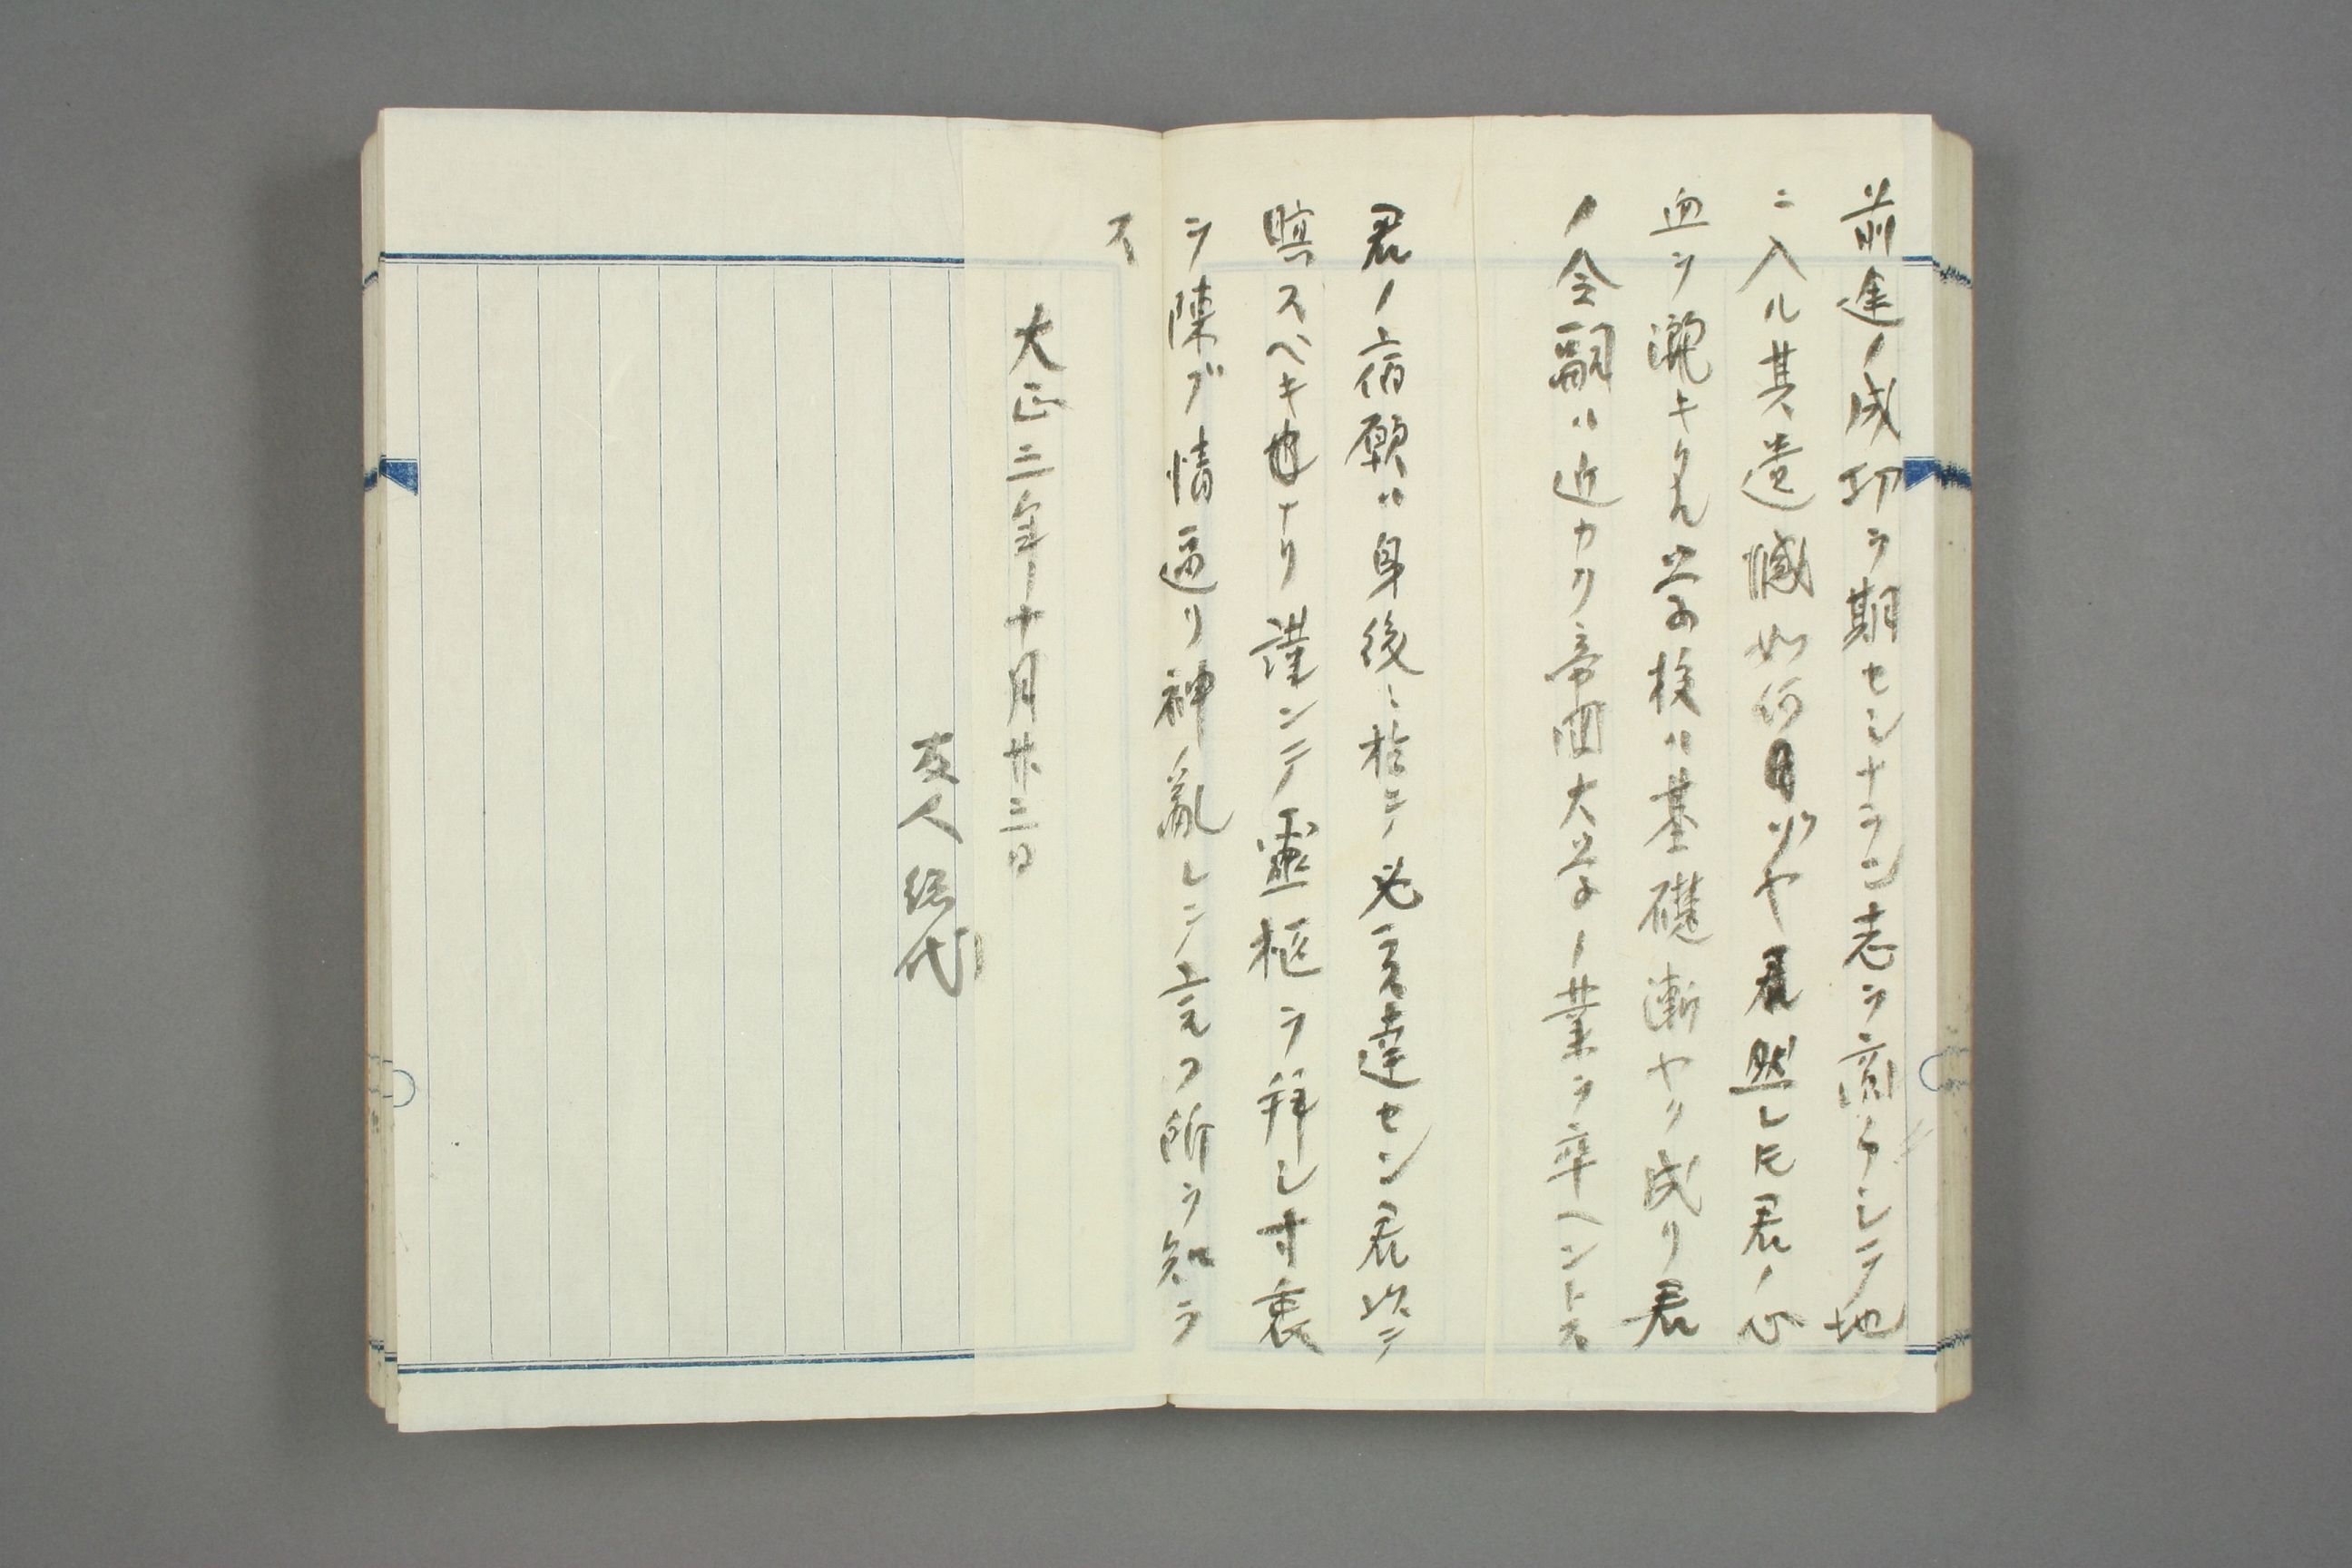 前途ノ成功ヲ期セシナラン志ヲ齎ラシテ地
ニ入ル其遺憾如何ソヤ君然レ𪜈君ノ心
血ヲ灑キタル学校ハ基礎漸ヤク成リ君
ノ令嗣ハ近カク帝国大学ノ業ヲ卒ヘントス
君ノ宿願ハ身後ニ於テ必ス達セン君以テ
瞑スベキナリ謹ンテ靈柩ヲ拝シ寸衷
ヲ陳ブ情逼リ神亂レテ言フ所ヲ知ラ
ス
大正三年十月廿三日
友人総代